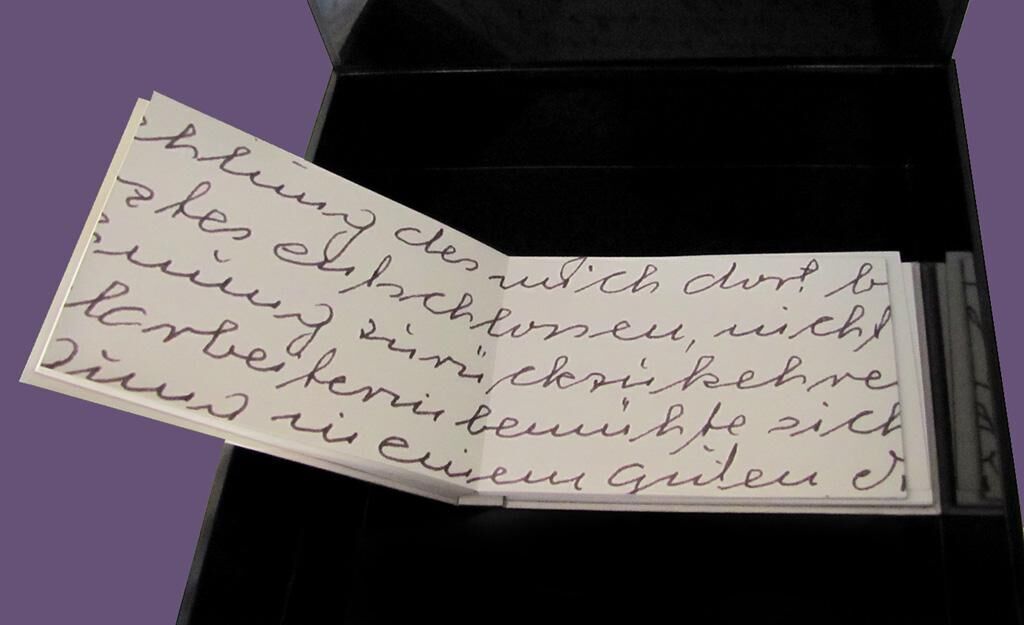 hlung des mich dort b
ztes entschlossen, nicht
nung zurückzukehre
tarbeiterin bemühte sich
zu einem guten